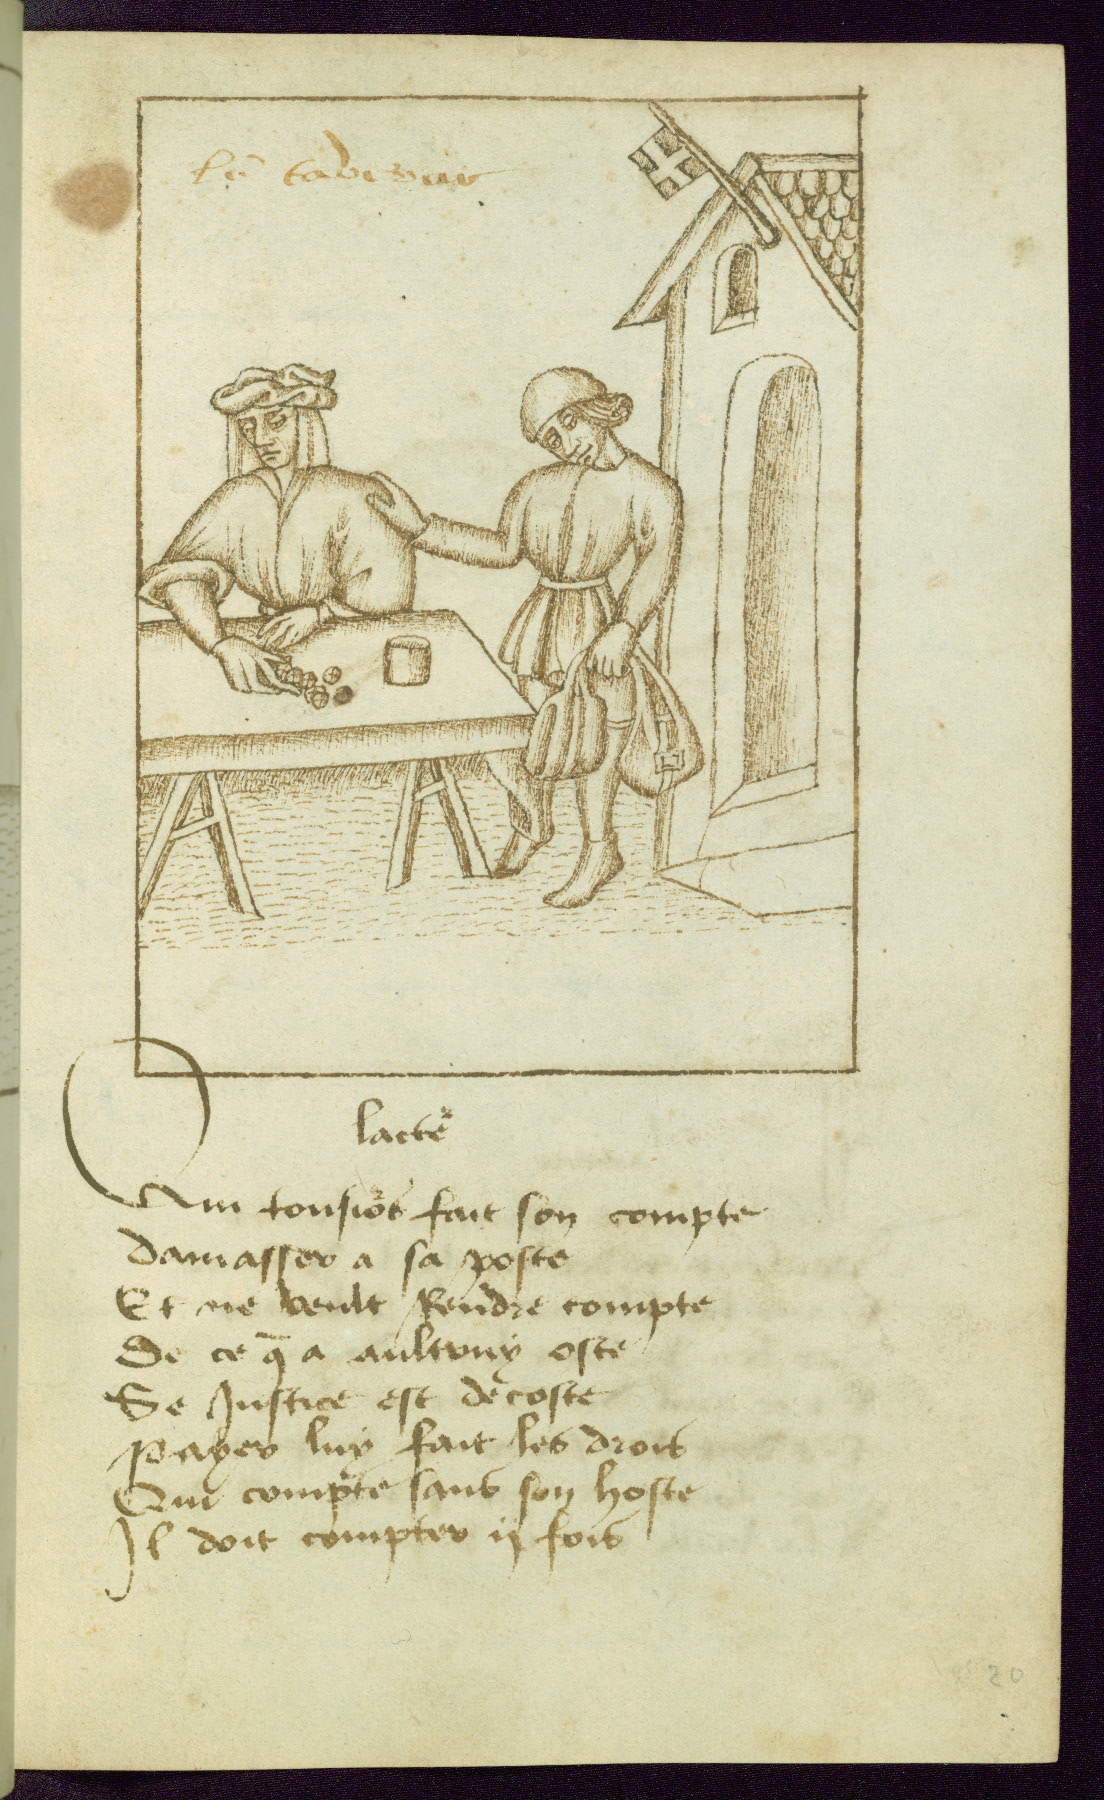 lacteur
Qui tousiors fait son compte
Damasser a sa poste
Et ne veult Rendre compte
De ce q̄ a aultruy oste
Se Justice est decoste
Payer luy fait les drois
Qui compte sans son hoste
Il doit compter ij fois
20